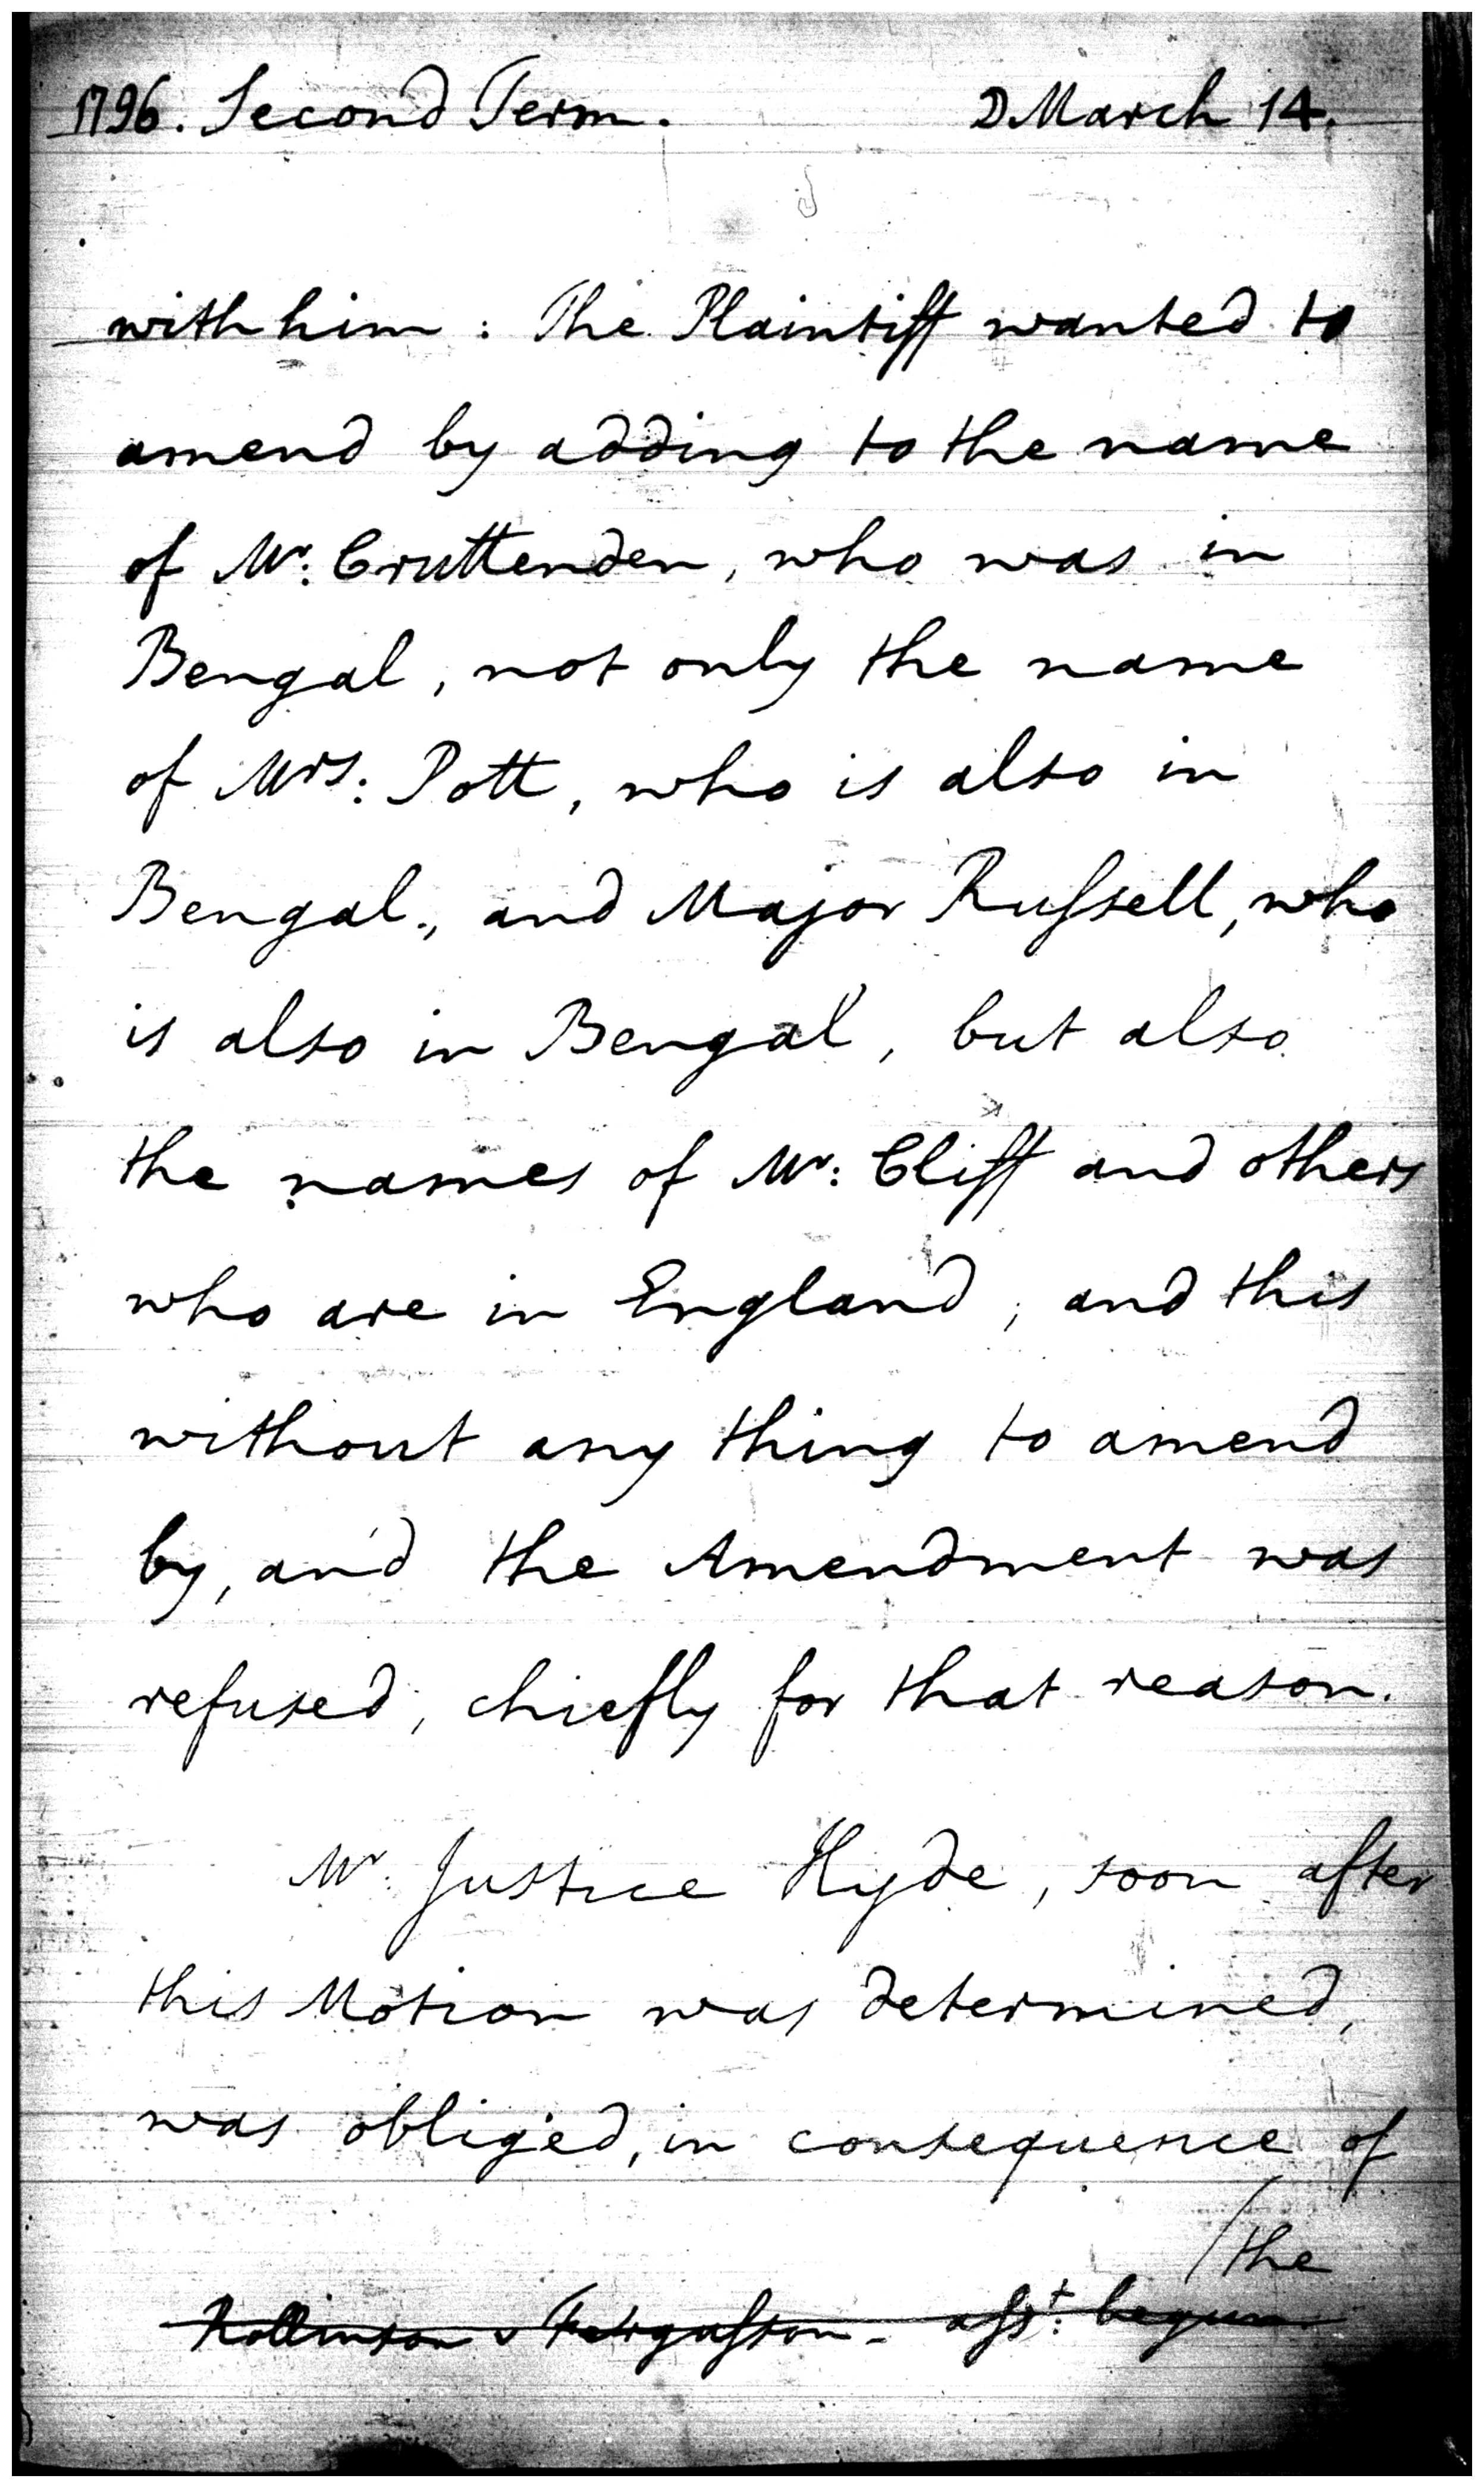 1796. Second Term. D March 14.
with him : The Plaintiff wanted to
amend by adding to the name
of Mr: Cruttenden, who was in
Bengal, not only the name
of Mrs: Pott, who is also in
Bengal., and Major Ruſsell, who
is also in Bengal, but also
the names of Mr: Cliff and others
who are in England, and this
without any thing to amend
by, and the Amendment was
refused, chiefly for that reason.
Mr. Justice Hyde, soon after
this Motion was determined,
was obliged, in consequence of
/the
Rollinson v Ferguſson - aſst: begun